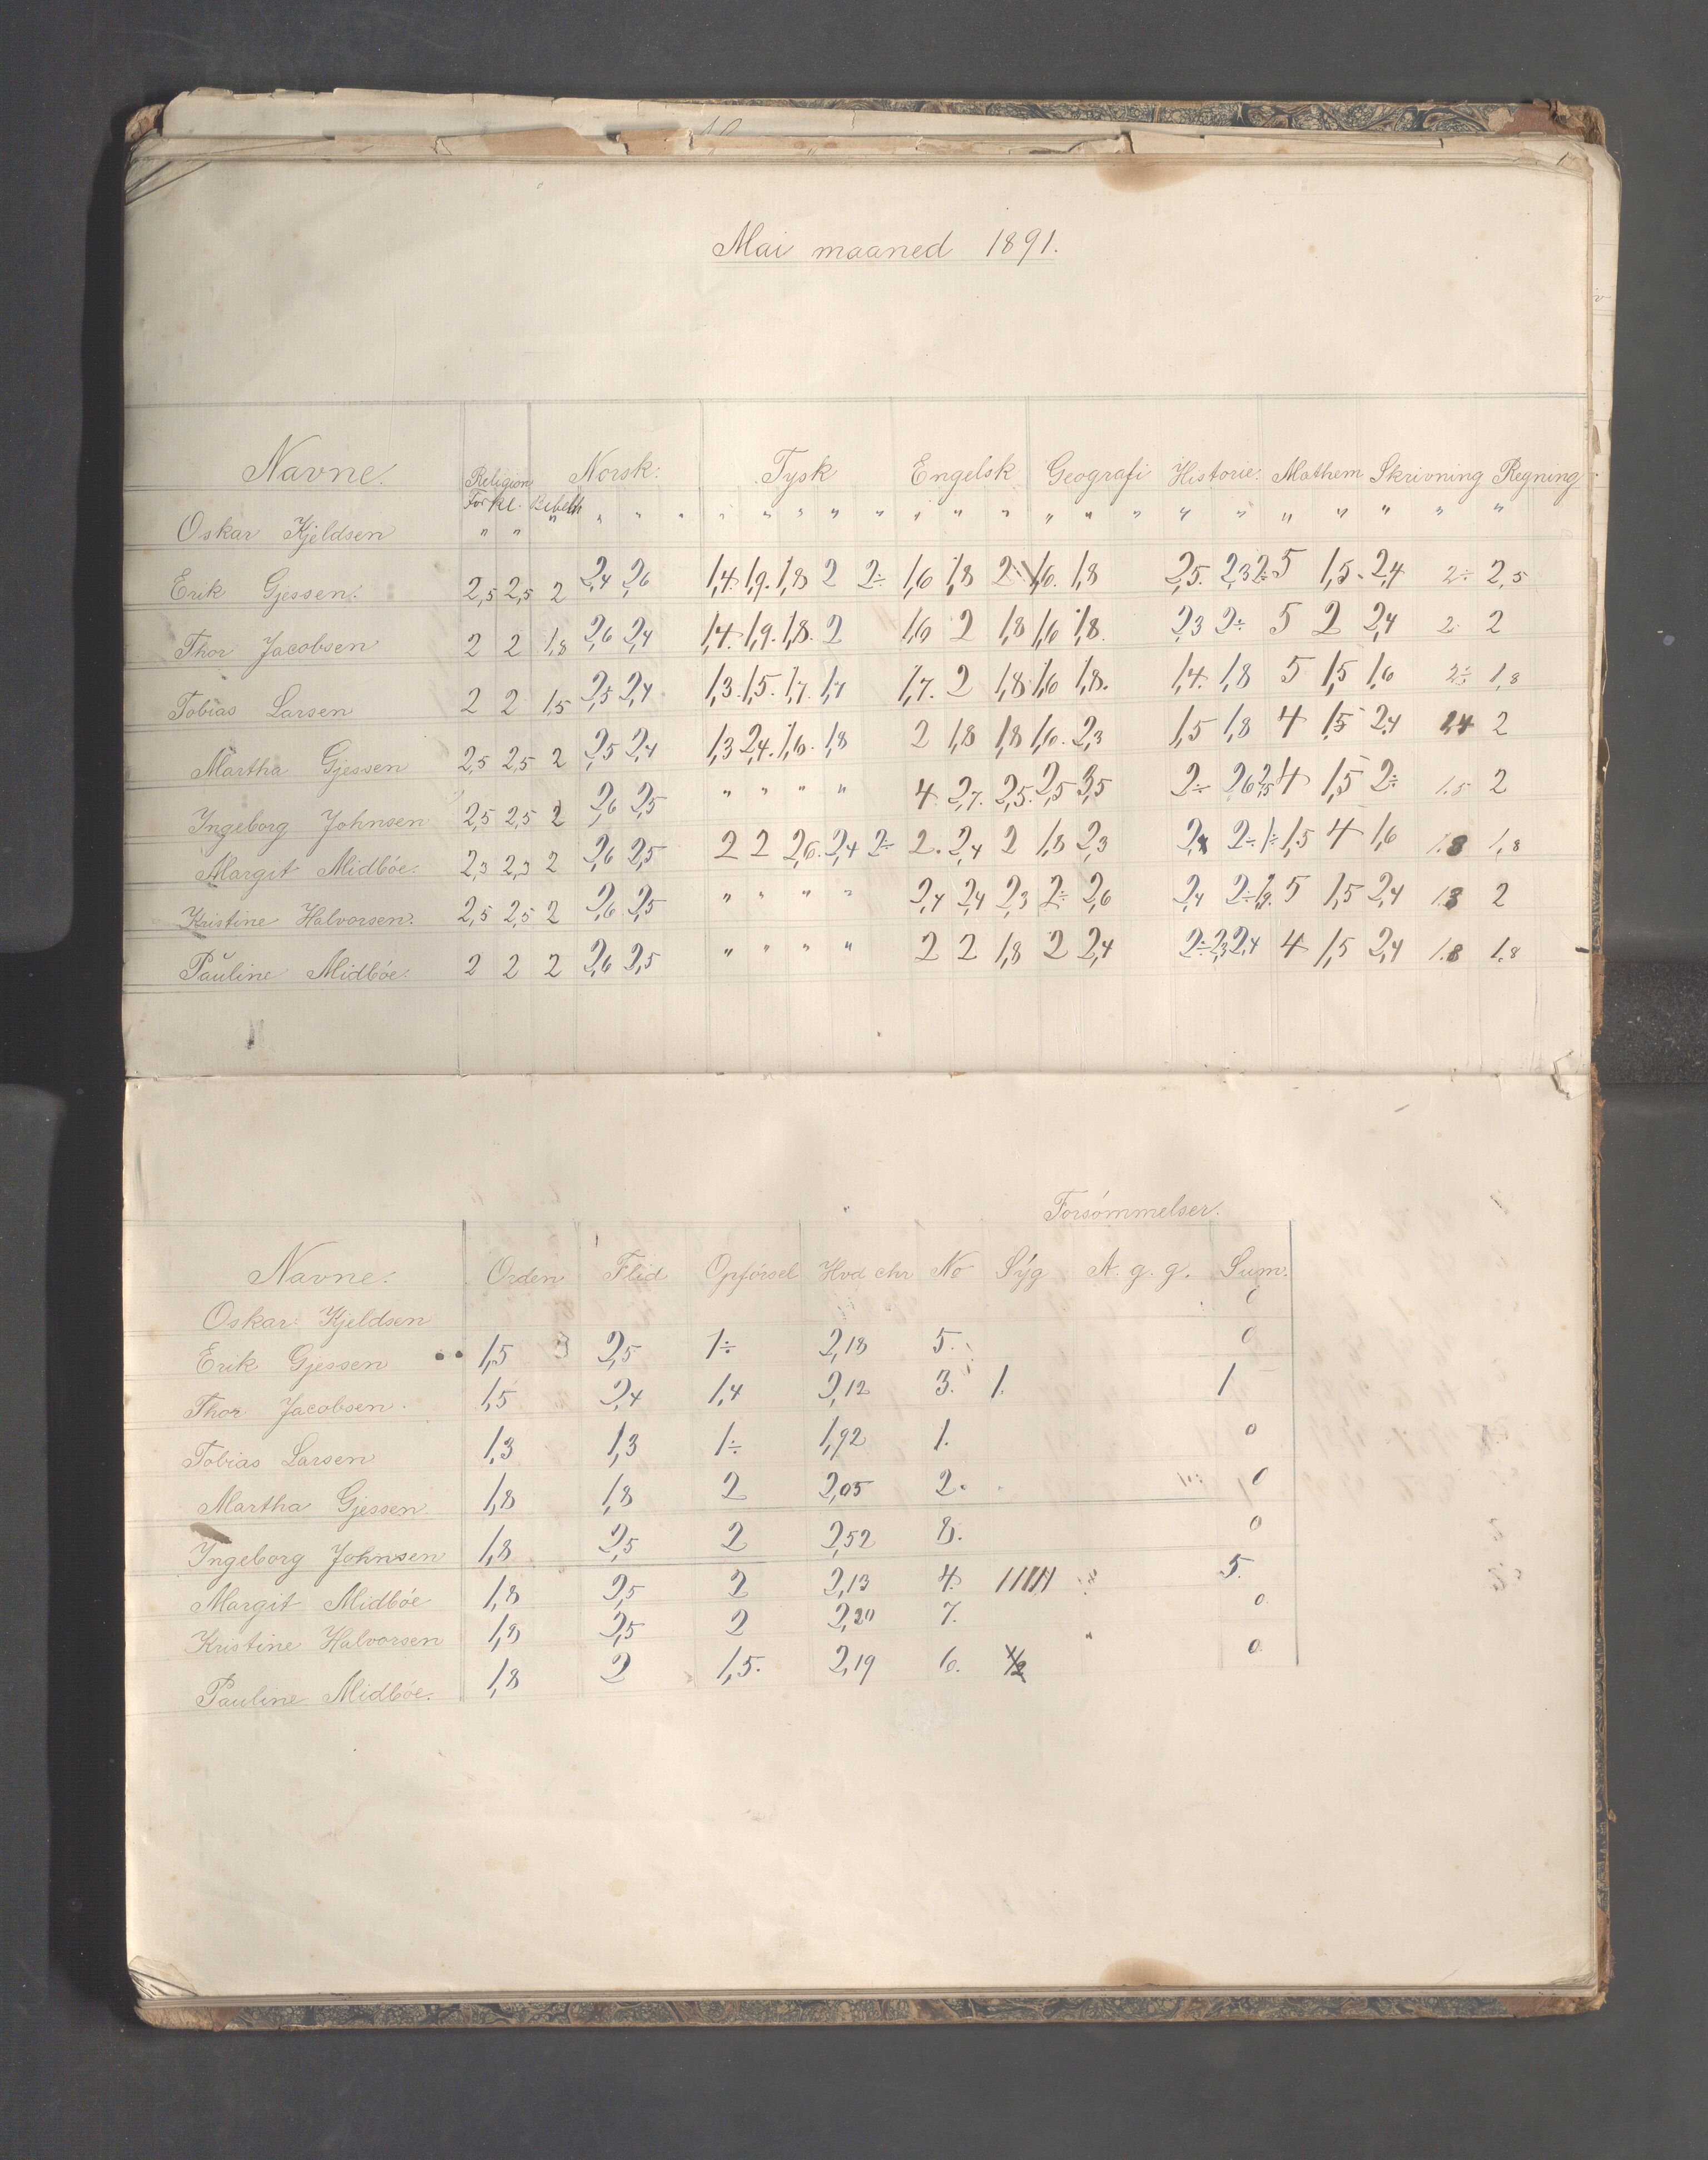 Mai maaned 1891.
Navne. Religion Norsk. Tysk Engelsk Geografi Historie. Mathem Skrivning Regning
Forkl. Bibelh
Oskar Kjeldsen " " " " " " " " " " " " " " " " " " " " " " " "
Erik Gjessen. 2,5 2,5 2 2,4 2,6 1,4. 1,9. 1,8 2 2÷ 1,6 1,8 2 1,6. 1,8 2,5. 2,3 2÷ 5 1,5. 2,4 2÷ 2,5
Thor Jacobsen 2 2 1,8 2,6 2,4 1,4. 1,9. 1,8. 2 1,6 2 1,8 1,6 1,8. 2,3 2÷ 5 2 2,4 2 2
Tobias Larsen 2 2 1,5 2,5 2,4 1,3. 1,5. 1,7. 1,7 1,7. 2 1,8 1,6 1,8. 1,4. 1,8 5 1,5 1,6 2÷ 1,8
Martha Gjessen 2,5 2,5 2 2,5 2,4 1,3 2,4. 1,6. 1,8 2 1,8 1,8 1,6. 2,3 1,5 1,8 4 1,5 2,4 2,4 2
Ingeborg Johnsen 2,5 2,5 2 2,6 2,5 " " " " 4 2,7. 2,5. 2,5 3,5 2÷ 2,6 2,5 4 1,5 2÷ 1.5 2
Margit Midbóe. 2,3 2,3 2 2,6 2,5 2 2 2,6. 2,4 2÷ 2. 2,4 2 1,8 2,3 2÷ 1÷ 1,5 4 1,6 1.8 1,8
Kristine Halvorsen. 2,5 2,5 2 2,6 2,5 " " " " 2,4 2,4 2,3 2÷ 2,6 2,4 2÷ 1,9. 5 1,5 2,4 1.8 2
Pauline Midbóe. 2 2 2 2,6 2,5 " " " " 2 2 1,8 2 2,4 2÷ 2,3 2,4 4 1,5 2,4 1.8 1,8
Forsómmelser.
Navne. Orden Flid Opfórsel Hvd chr No Syg A. g. g. Sum.
Oskar Kjeldsen 0
Erik Gjessen 1,5 2,5 1÷ 2,18 5. 0
Thor Jacobsen. 1,5 2,4 1,4 2,12 3. 1. 1
Tobias Larsen 1,3 1,3 1÷ 1,92 1. 0
Martha Gjessen 1,8 1,8 2 2,05 2. 0
Ingeborg Johnsen 1,8 2,5 2 2,52 8. 0
Margit Midbóe 1,8 2,5 2 2,13 4. 11111 5.
Kristine Halvorsen 1,8 2,5 2 2,20 7. 0
Pauline Midbóe. 1,8 2 1,5. 2,19 6. 1/2 0